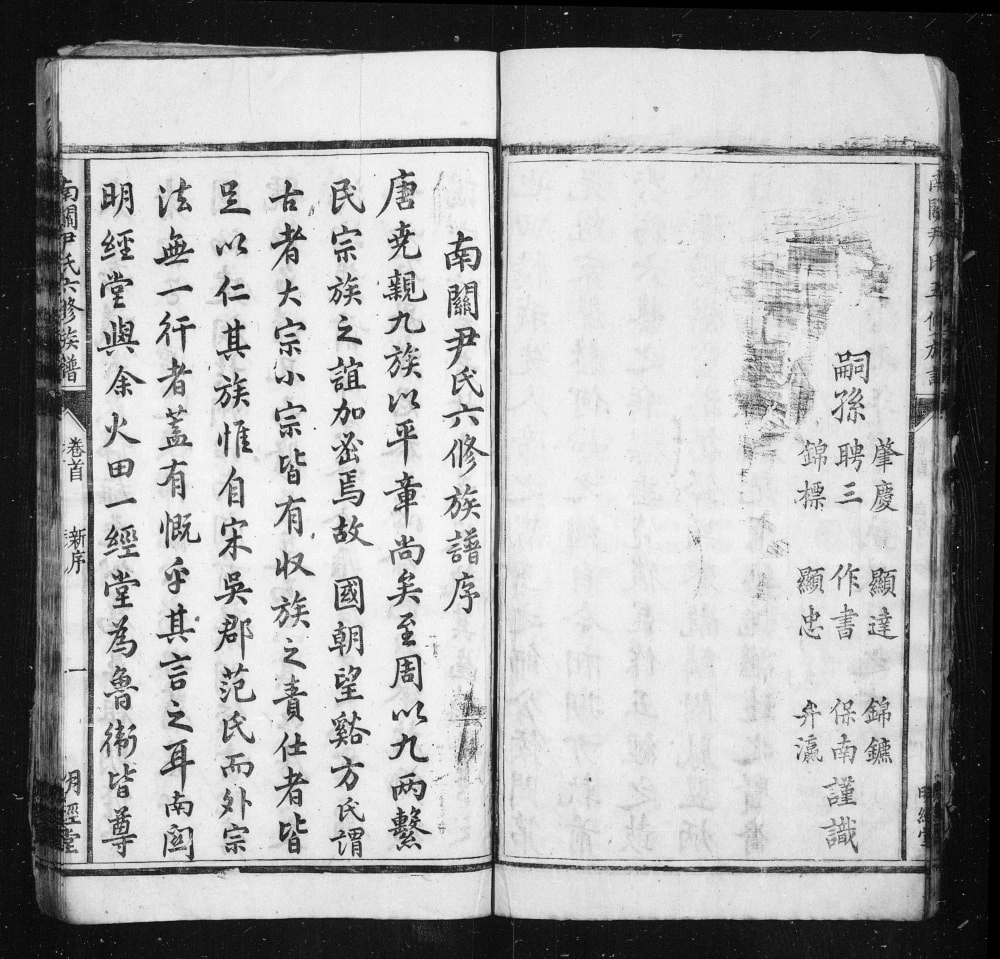 肇慶 顯達 錦鑣
嗣孫 聘三 作書 保南 謹識
錦標 顯忠 弁瀛
南關尹氏六修族譜序
唐堯親九族以平章尚矣至周以九兩繫
民宗族之誼加密焉故 國朝望谿方氏謂
古者大宗小宗皆有収族之責仕者皆
足以仁其族惟自宋吳郡范氏而外宗
法無一行者蓋有慨乎其言之耳南關
明經堂與余火田一經堂為魯衛皆尊
南關尹氏六修族譜 卷首 新序 一 明經堂